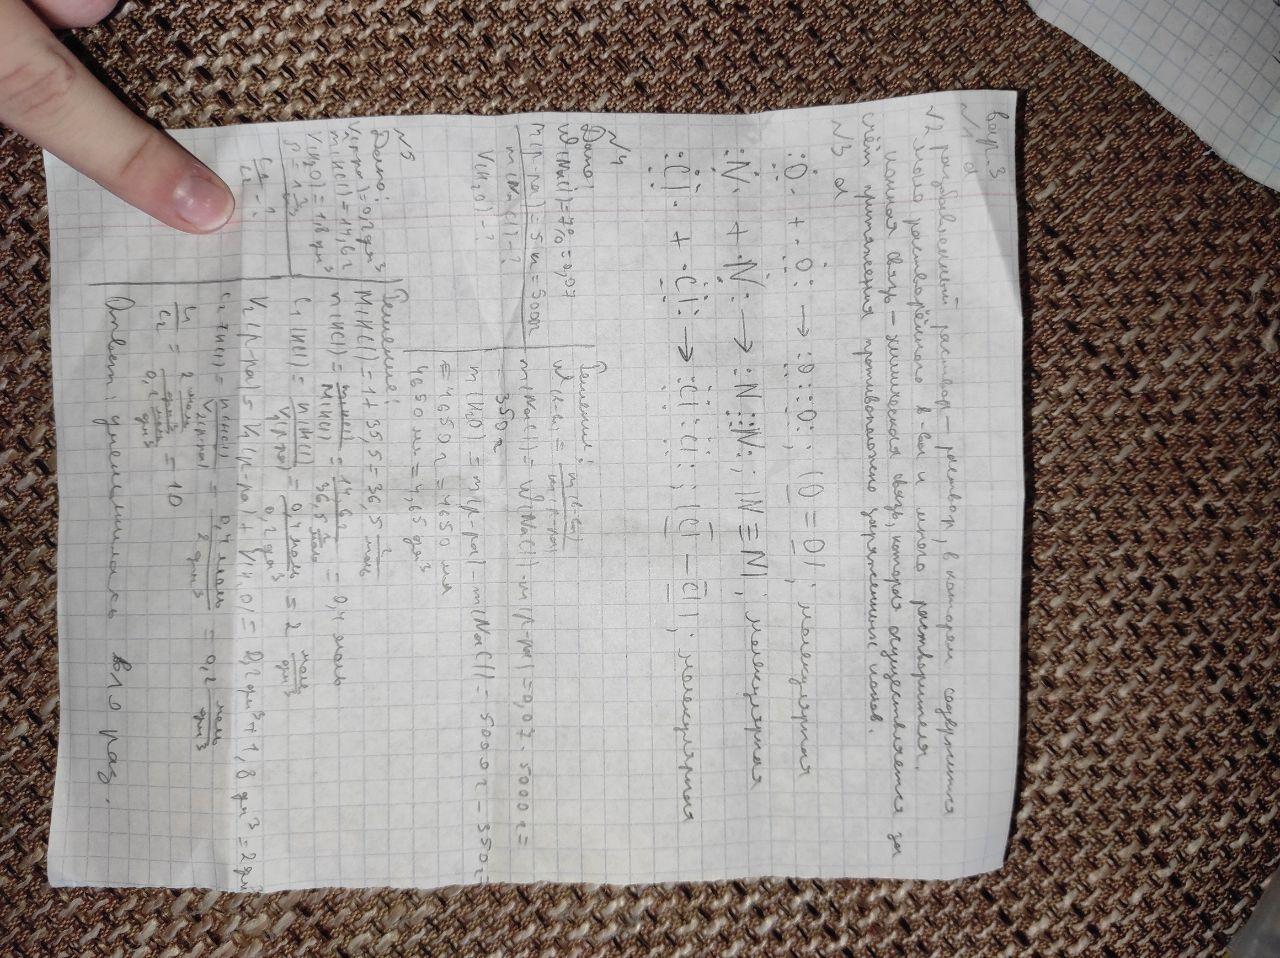 вар. 3
√1 d
√2 разбавленный раствор – раствор, в котором содержится
мало растворённого в-ва и много растворителя.
ионная связь – химическая связь, которая осуществляется за
счёт притяжения противоположно заряженных ионов.
√3 d
:Ö. + .Ö: → :Ö::Ö: ; |O=O| ; молекулярная
:N⋮ + ⋮N: → :N⋮⋮N: ; |N≡N| ; молекулярная
:Cl. + .Cl: → :Cl:Cl: ; |Cl – Cl| ; молекулярная
√4
Дано:
W(NaCl)=7%=0,07
m(р-ра)=5 кг=5000г
m(NaCl)-?
V(H₂O)-?
Решение:
W(в-ва) = m(в-ва)/m(р-ра)
m(NaCl) = W(NaCl)·m(р-ра)=0,07·5000 г=
= 350г
m(H₂O) = m(р-ра) – m(NaCl) = 5000 г – 350г
= 4650 г = 4650 мл
4650 мл = 4,65 дм³
√5
Дано:
V₁(р-ра)=0,2 дм³
m(HCl)=14,6 г
V(H₂O)=1,8 дм³
ρ=1
C₁/C₂ - ?
Решение:
M(HCl)=1+35,5=36,5 г/моль
n(HCl) = m(HCl)/M(HCl) = 14,6г/36,5 г/моль = 0,4 моль
C₁(HCl) = n(HCl)/V₁(р-ра) = 0,4 моль/0,2 дм³ = 2 моль/дм³
V₂(р-ра) = V₁(р-ра) + V(H₂O) = 0,2 дм³ + 1,8 дм³ = 2 дм³
C₂(HCl) = n(HCl)/V₂(р-ра) = 0,4 моль/2 дм³ = 0,2 моль/дм³
C₁/C₂ = 2 моль/дм³ / 0,2 моль/дм³ = 10
Ответ: уменьшилась в 10 раз.